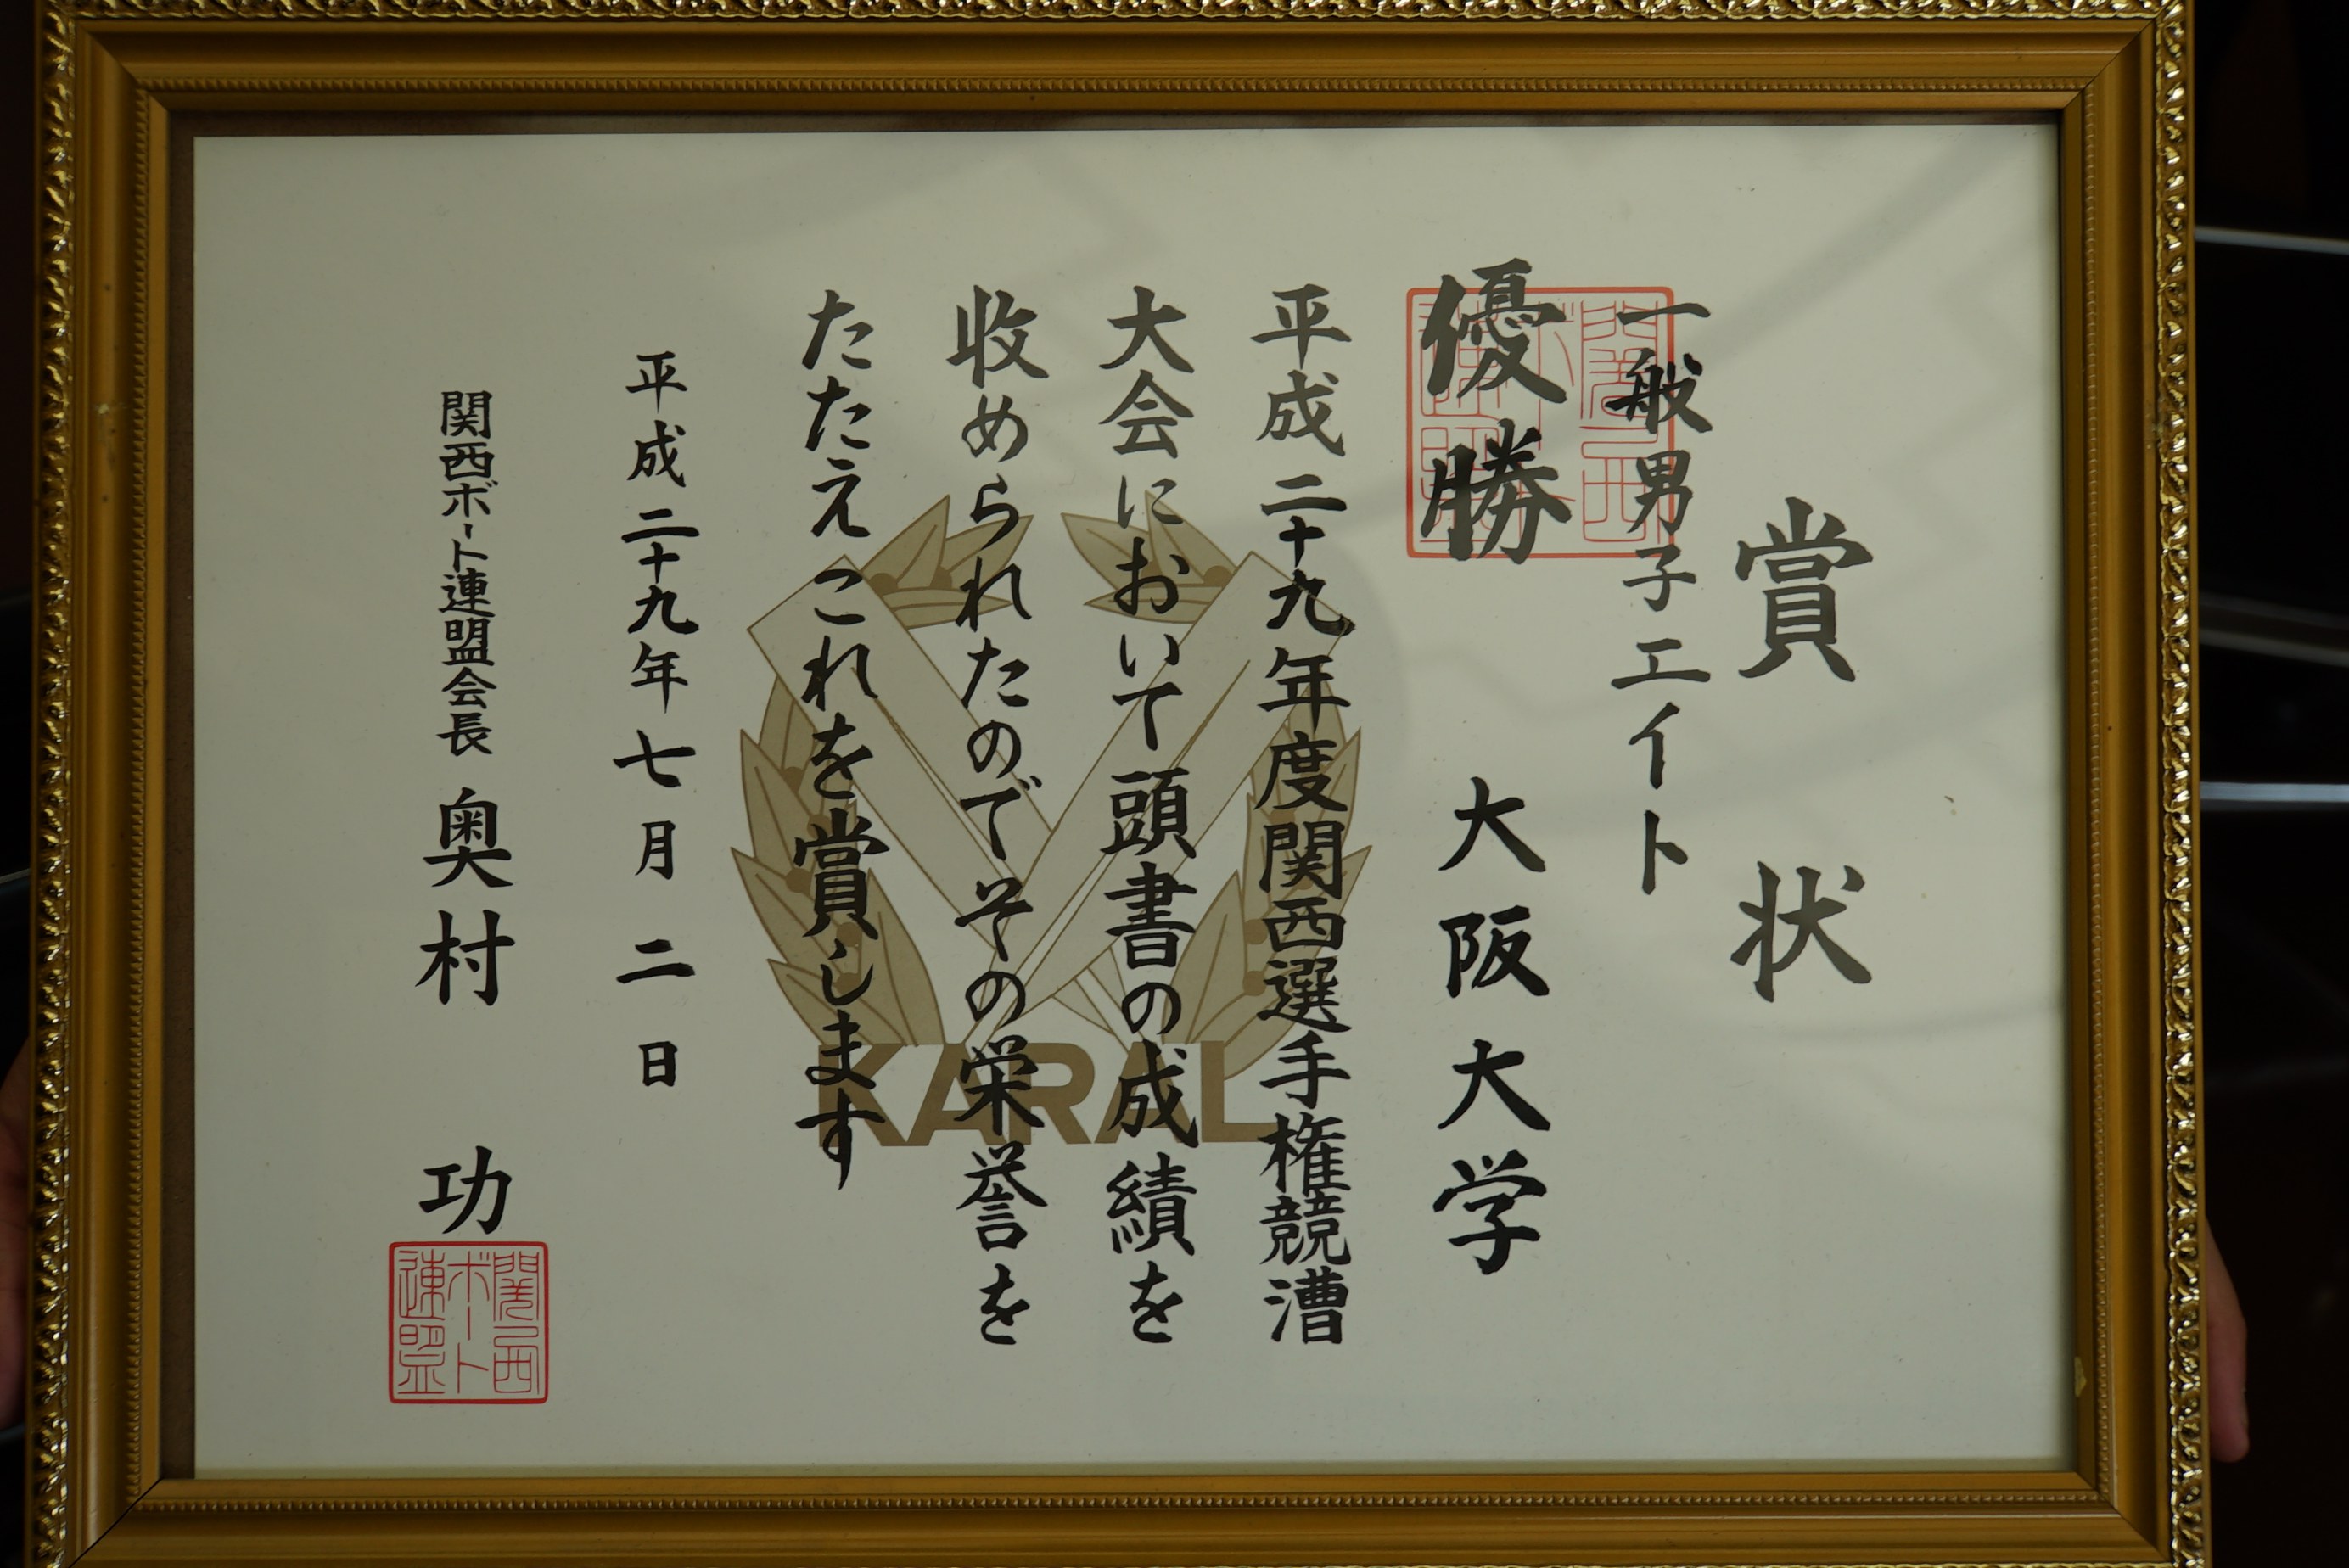 賞状
一般男子エイト
優勝 大阪大学
平成二十九年度関西選手権競漕
大会において頭書の成績を
収められたのでその栄誉を
たたえこれを賞します
平成二十九年七月二日
関西ボート連盟会長 奥村 功
関西ボート連盟
KARAL